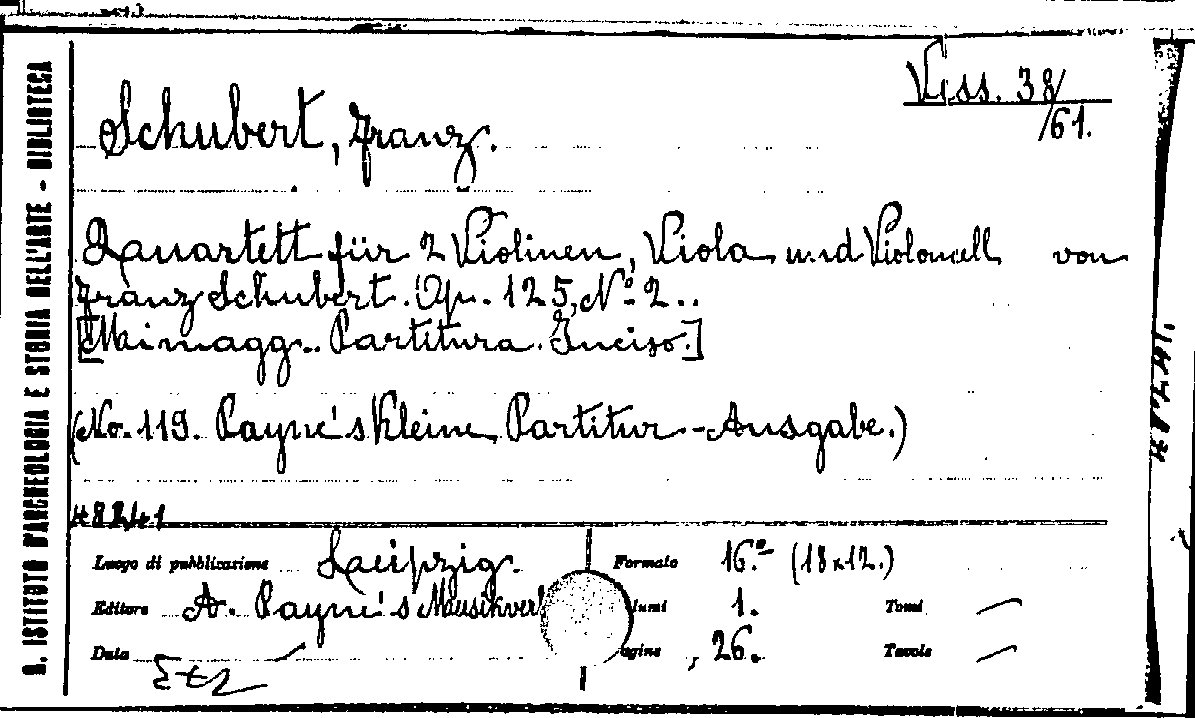 R. ISTITUTO D'ARCHEOLOGIA E STORIA DELL'ARTE - BIBLIOTECA
Viss. 38/
/61.
Schubert, Franz.
Quartett für 2 Violinen, Viola und Violoncell von
Franz Schubert. Op. 125, No. 2..
[Mi magg.. Partitura. Inciso.]
(No. 119. Payne's Kleine Partitur-Ausgabe.)
48241
Luogo di pubblicazione Leipzig. Formato 16.° (18x12.)
Editore A. Payne's Musikverl lumi 1. Tomi —
Data — agine , 26. Tavole —